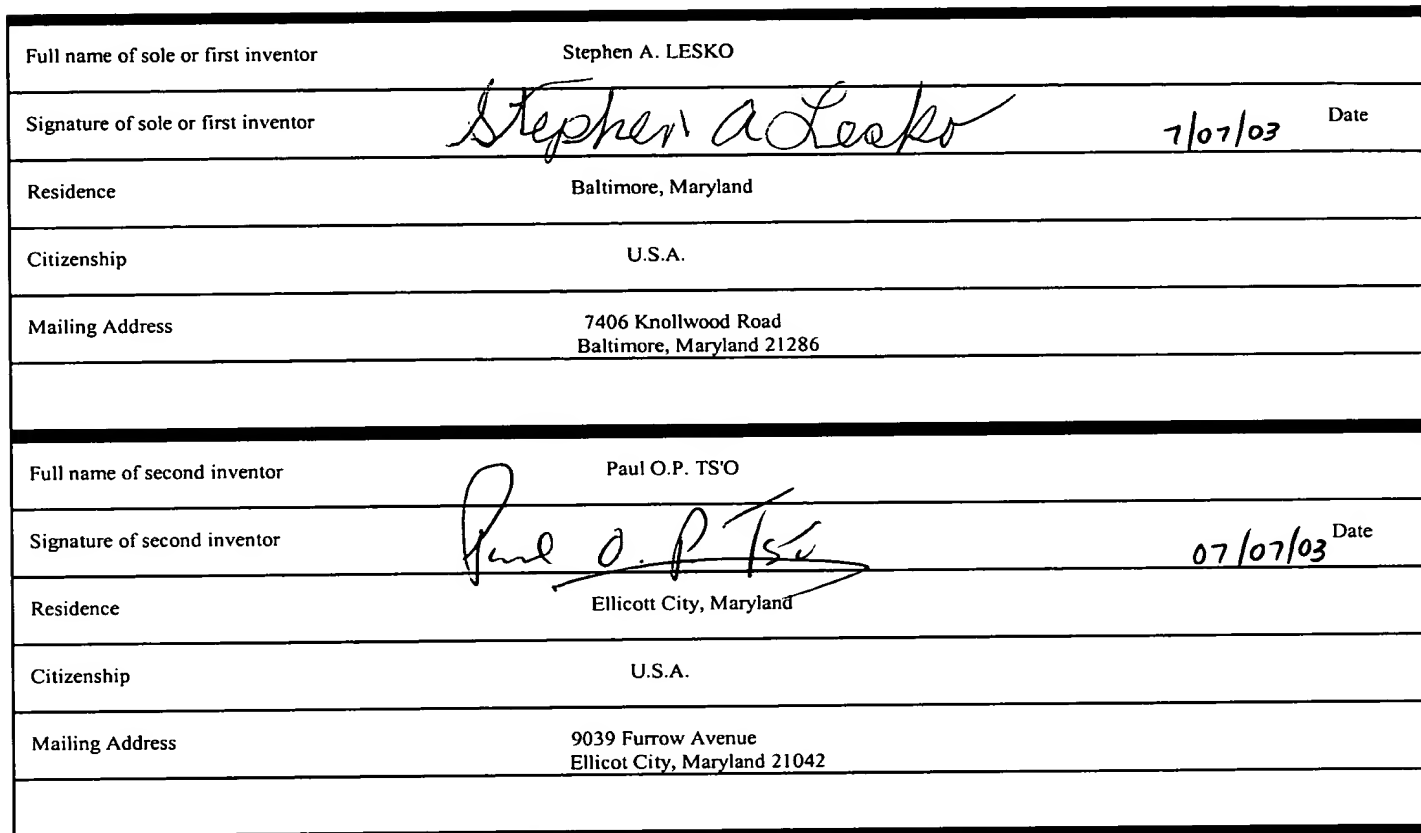 Full name of sole or first inventor Stephen A. LESKO
Signature of sole or first inventor Stephen A Lesko 7/07/03 Date
Residence Baltimore, Maryland
Citizenship U.S.A.
Mailing Address 7406 Knollwood Road
Baltimore, Maryland 21286
Full name of second inventor Paul O.P. TS'O
Signature of second inventor Paul O. P Ts'o 07/07/03 Date
Residence Ellicott City, Maryland
Citizenship U.S.A.
Mailing Address 9039 Furrow Avenue
Ellicot City, Maryland 21042